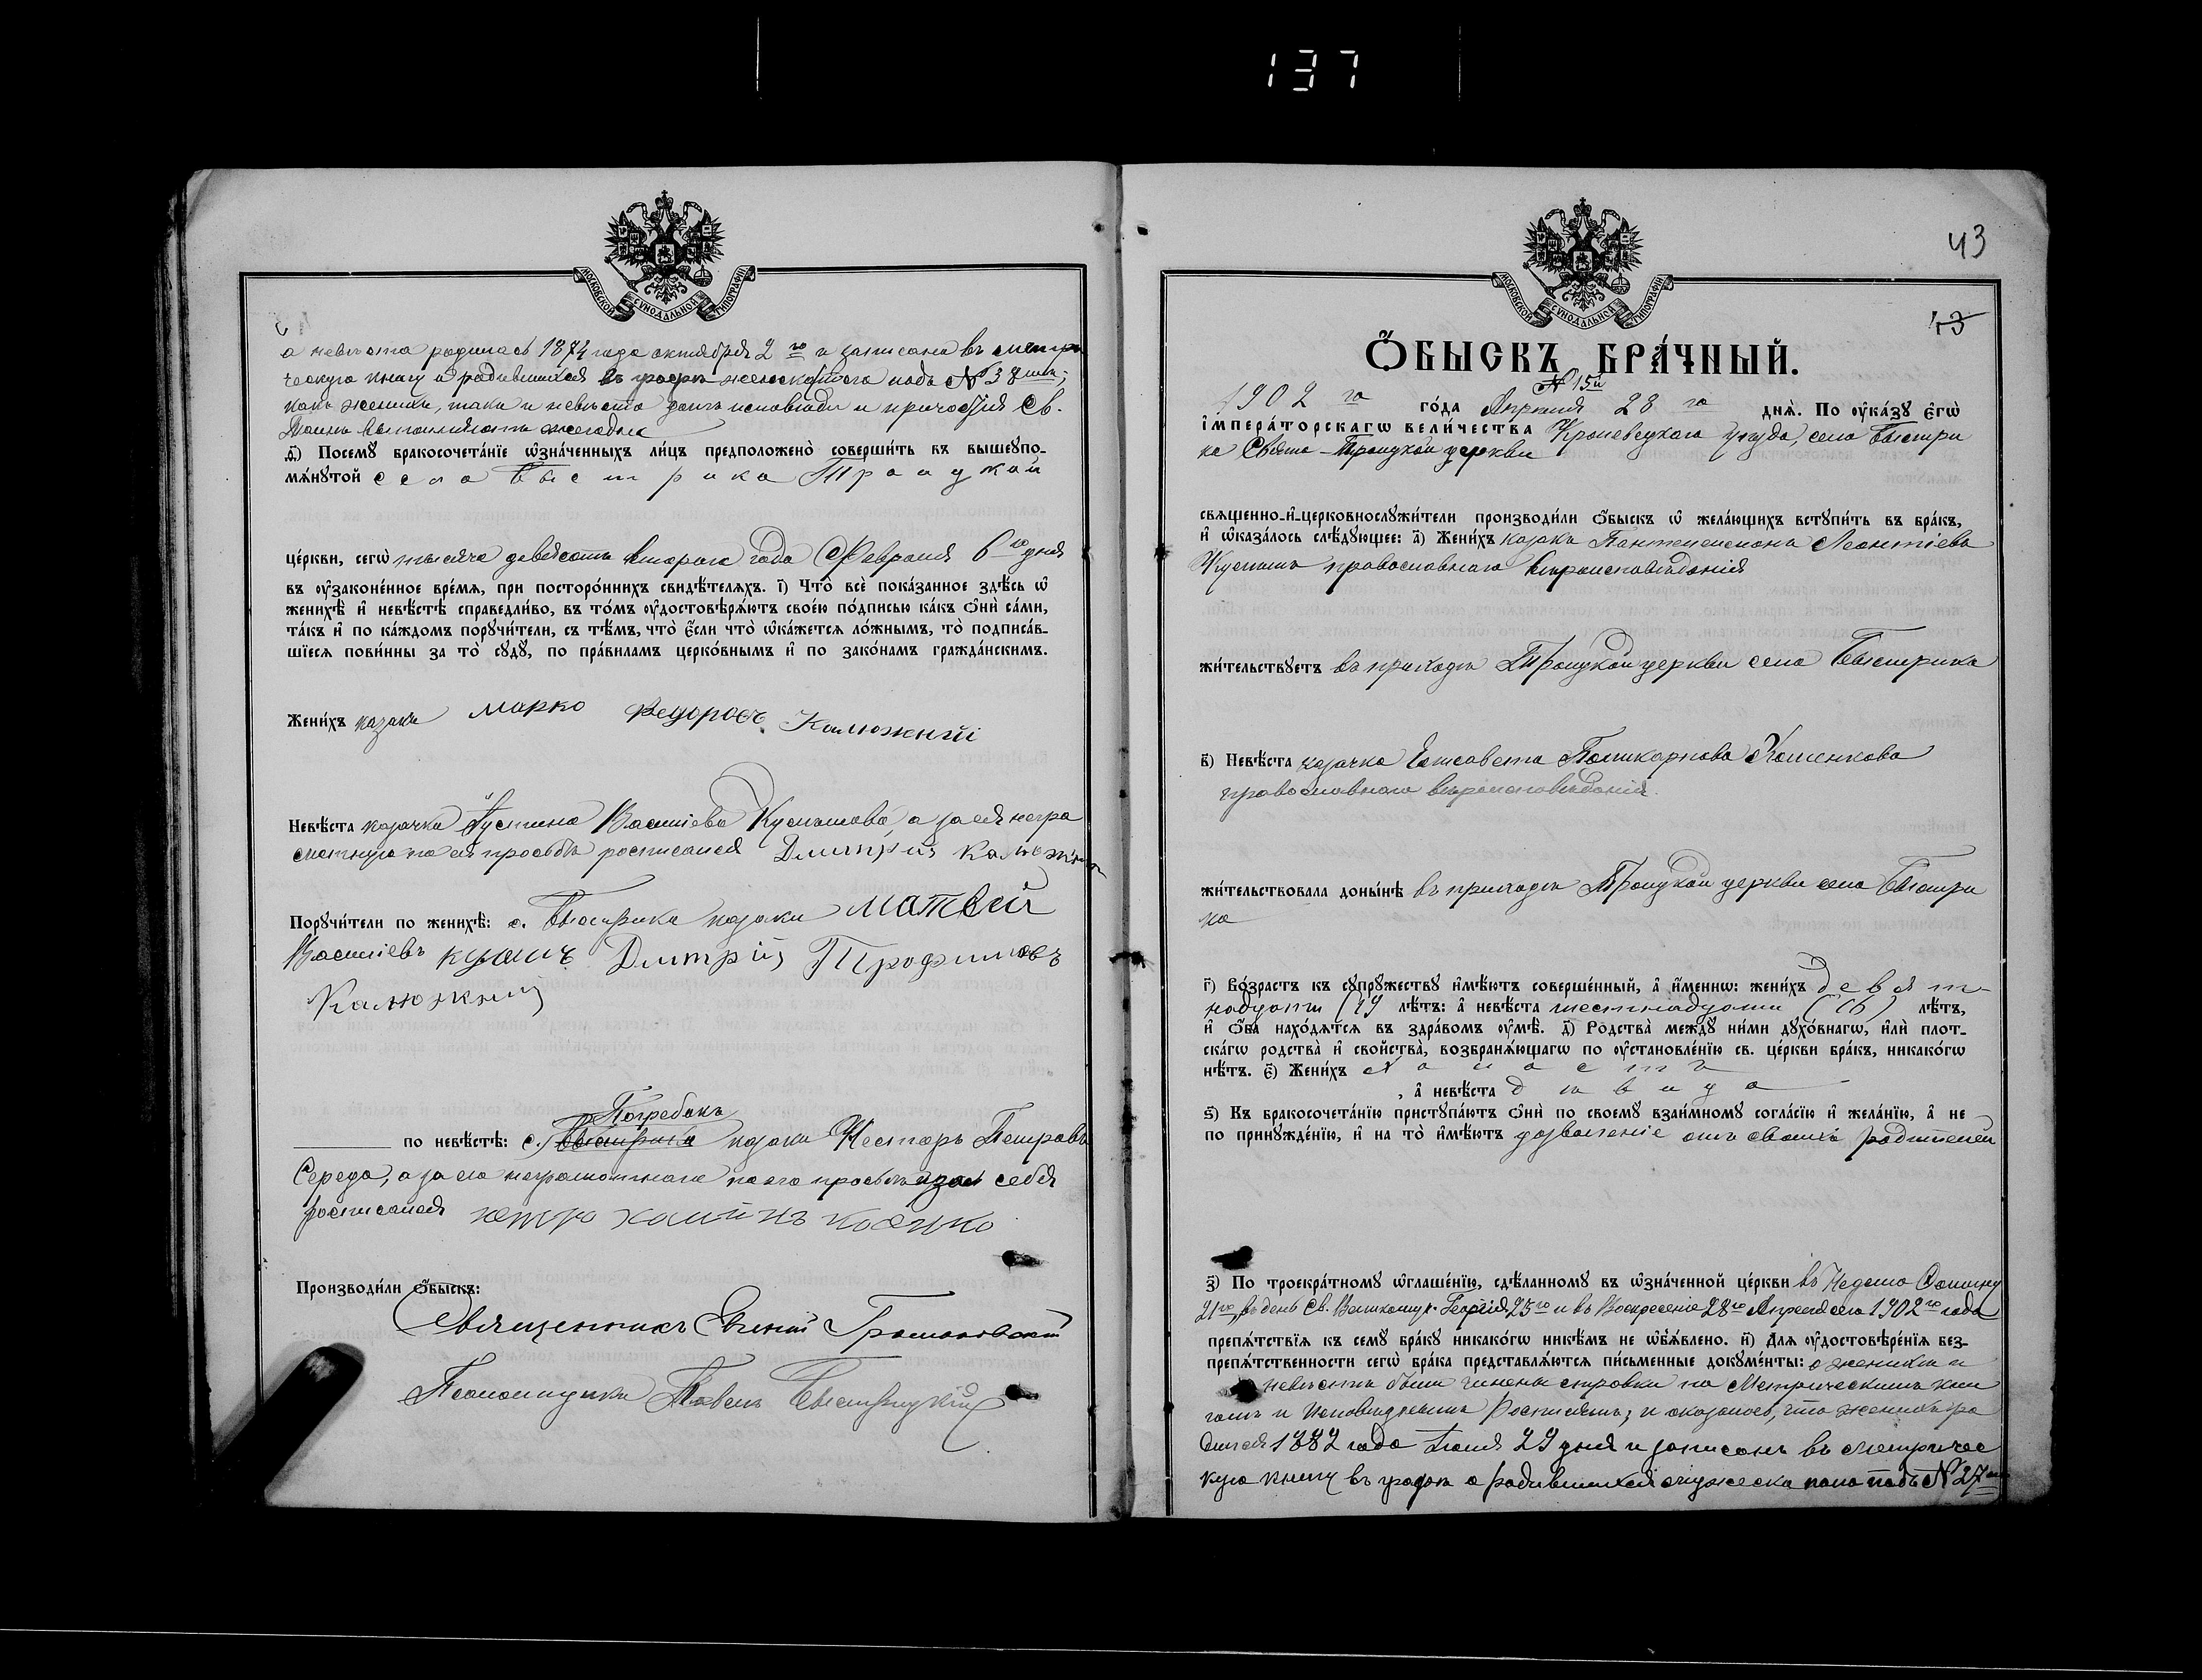 137
МОСКОВСКОЙ СѴНОДАЛЬНОЙ ТИПОГРАФІИ
а невѣста родилась 1874 года октября 2го и записана въ метри
ческую книгу о родившихся женска пола подъ № 38мъ;
какъ женихъ, такъ и невѣста долгъ исповѣди и причастія Св.
Таинъ выполняютъ ежегодно
ѳ҃) Посемꙋ̀ бракосочета́нїе ѡ҆зна́ченныхъ ли́цъ предположено̀ соверши́ть въ вышеꙋпо-
мѧ́нꙋтой села Быстрика Троицкой
це́ркви, сегѡ̀ тысяча девятсотъ второго года Февраля 6го дня
въ ᲂу҆законе́нное вре́мѧ, при посторо́ннихъ свидѣ́телѧхъ. і҃) Что̀ всѐ пока́занное здѣ́сь ѡ҆
женихѣ̀ и҆ невѣ́стѣ справедли́во, въ то́мъ ᲂу҆достовѣрѧ́ютъ свое́ю по́дписью ка́къ ѻ҆нѝ са́ми,
та́къ и҆ по ка́ждомъ порꙋчи́тели, съ тѣ́мъ, что̀ є҆́сли что̀ ѡ҆ка́жетсѧ ло́жнымъ, то̀ подписа́в-
шїесѧ пови́нны за то̀ сꙋдꙋ̀, по пра́виламъ церко́внымъ и҆ по зако́намъ гражда́нскимъ.
Жени́хъ казакъ Марко Федоровъ Калюжній
Невѣ́ста казачка Іустина Василіева Кусмашова, а за ея негра
мотную по ея просьбѣ росписался Дмитрій Калюжный
Порꙋчи́тели по женихѣ̀: с. Быстрика казаки Матвѣй
Василіевъ Дмитрій Трофимовъ
Калюжный
Погребокъ
по невѣ́стѣ: с. Быстрика казаки Несторъ Петровъ
Середа, а за его неграмотного по его просьбѣ и за себя
росписался
Производи́ли ѻ҆́быскъ:
Священникъ Евгеній Громаковскій
Псаломщикъ Павелъ Быстрицкій
МОСКОВСКОЙ СѴНОДАЛЬНОЙ ТИПОГРАФІИ
43
43
Ѻ҆́БЫСКЪ БРА́ЧНЫЙ.
№ 15й
1902го го́да Апрѣля 28го днѧ̀. По ᲂу҆ка́зꙋ є҆гѡ̀
і҆мпера́торскагѡ вели́чества Кролевецкого уѣзда, села Быстри
ка Свято-Троицкой церкви
свѧще́нно-и҆-церковнослꙋжи́тели производи́ли ѻ҆́быскъ ѡ҆ жела́ющихъ встꙋпи́ть въ бра́къ,
и҆ ѡ҆каза́лось слѣ́дꙋющее: а҃) Жени́хъ казакъ Пантелеимонъ Леонтіевъ
православнаго вѣроисповѣданія
жи́тельствꙋетъ въ приходѣ Троицкой церкви села Быстрика
в҃) Невѣ́ста казачка Елисавета Поликарпова Кошенкова
православнаго вѣроисповѣданія.
жи́тельствовала доны́нѣ въ приходѣ Троицкой церкви села Быстри
ка
г҃) Во́зрастъ къ сꙋпрꙋ́жествꙋ и҆мѣ́ютъ соверше́нный, а҆ и҆́меннѡ: жени́хъ девят-
надцати (19 лѣ́тъ: а҆ невѣ́ста шестнадцати (16) лѣ́тъ,
и҆ ѻ҆́ба нахо́дѧтсѧ въ здра́вомъ ᲂу҆мѣ̀. д҃) Ро́дства междꙋ̀ ни́ми дꙋхо́внагѡ, и҆лѝ плот-
ска́гѡ родства̀ и҆ сво́йства, возбранѧ́ющагѡ по ᲂу҆становле́нїю св. це́ркви бра́къ, никако́гѡ
нѣ́тъ. є҃) Жени́хъ холостъ
, а҆ невѣ́ста дѣвица
ѕ҃) Къ бракосочета́нїю пристꙋпа́ютъ ѻ҆нѝ по своемꙋ̀ взаи́мномꙋ согла́сїю и҆ жела́нїю, а҆ не
по принꙋжде́нїю, и҆ на то̀ и҆мѣ́ютъ дозволеніе отъ своихъ родителей
з҃) По троекра́тномꙋ ѡ҆глаше́нїю, сдѣ́ланномꙋ въ ѡ҆зна́ченной це́ркви въ Недѣлю Ѳомину
21го, въ день Св. Великомуч. Георгія 23го и въ Воскресеніе 28го Апрѣля сего 1902го года
препѧ́тствїѧ къ семꙋ̀ бра́кꙋ никако́гѡ никѣ́мъ не ѡ҆б̾ѧ́влено. и҃) Длѧ ᲂу҆достовѣре́нїѧ без-
препѧ́тственности сегѡ̀ бра́ка представлѧ́ютсѧ пи́сьменные докꙋме́нты: о женихѣ и
невѣстѣ были чинены справки по Метрическимъ кни
гамъ и Исповѣднымъ Росписямъ; и оказалось, что женихъ ро
дился 1882 года Іюля 29 дня и записанъ въ метричес
кую книгу въ графѣ о родившихся мужеска пола подъ № 27мъ